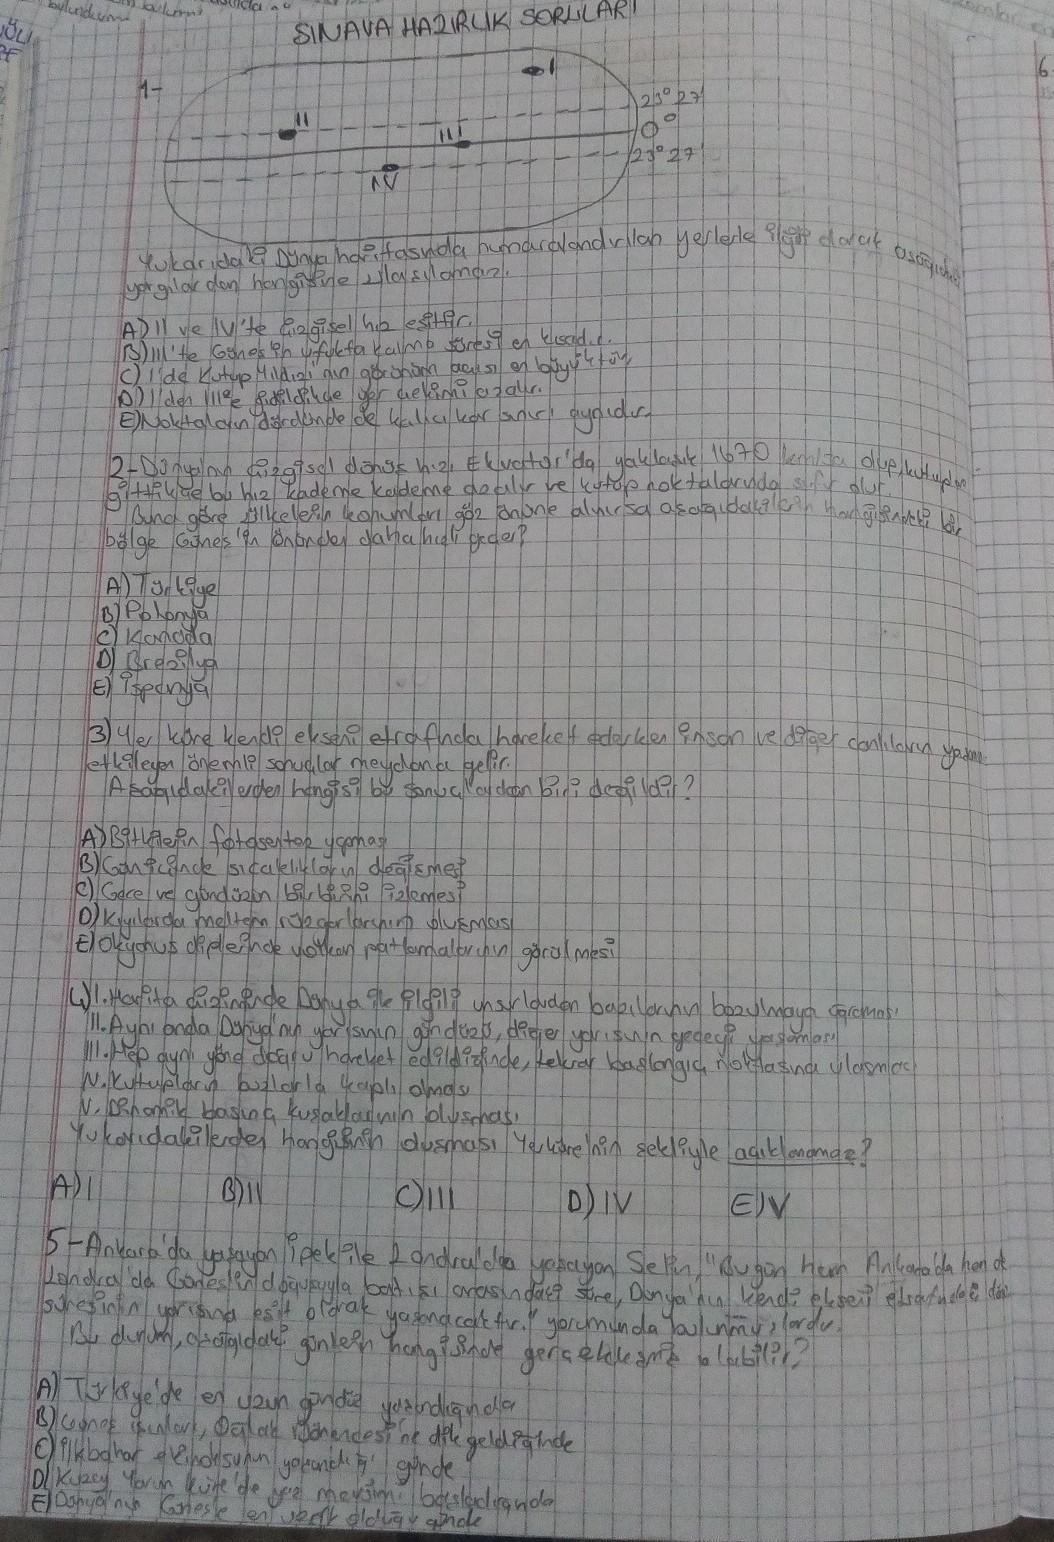 SINAVA HAZIRLIK SORULARI
1-
I
23° 27'
II
0°
III
23° 27'
IV
Yukarıdaki Dünya haritasında numaralandırılan yerlerle ilgili olarak aşağıdaki
yargılardan hangisine ulaşılamaz.
A) II ve IV'te çizgisel hız eşittir.
B) III'te Güneş'in ufukta kalma süresi en kısadır.
C) I'de Kutup Yıldızı'nın görünüm açısı en büyüktür
D) I'den III'e gidildikçe yer çekimi azalır.
E) Noktaların dördünde de kalıcı kar sınırı aynıdır
2-Dünya'nın çizgisel dönüş hızı, Ekvator'da yaklaşık 1670 km/sa olup kutuplara
gittikçe bu hız kademe kademe azalır ve kutup noktalarında sıfır olur.
Buna göre ülkelerin konumları göz önüne alınırsa aşağıdakilerin hangisindeki bir
bölge Güneş'in önünden daha hızlı geçer?
A) Türkiye
B) Polonya
C) Kanada
D) Brezilya
E) İspanya
3) Yer küre kendi ekseni etrafında hareket ederken insan ve diğer canlıların yaşamını
etkileyen önemli sonuçlar meydana gelir.
Aşağıdakilerden hangisi bu sonuçlardan biri değildir?
A) Bitkilerin fotosentez yapması
B) Gün içinde sıcaklıkların değişmesi
C) Gece ve gündüzün birbirini izlemesi
D) Kıyılarda meltem rüzgarlarının oluşması
E) Okyanus diplerinde volkan patlamalarının görülmesi
4) I. Harita çiziminde Dünya ile ilgili unsurlardan bazılarının bozulmaya uğraması
II. Aynı anda Dünya'nın yarısının gündüzü, diğer yarısının geceyi yaşaması
III. Hep aynı yöne doğru hareket edildiğinde, tekrar başlangıç noktasına ulaşması
IV. Kutupların buzlarla kaplı olması
V. Dinamik basınç kuşaklarının oluşması
Yukarıdakilerden hangisinin oluşması Yerküre'nin şekliyle açıklanamaz?
A) I B) II C) III D) IV E) V
5-Ankara'da yaşayan İpek ile Londra'da yaşayan Selin, "Bugün hem Ankara'da hem de
Londra'da Güneş'in doğuşuyla batışı arasındaki süre, Dünya'nın kendi ekseni etrafındaki dönüş
süresinin yarısına eşit olarak yaşanacaktır." yorumunda bulunmuşlardır.
Bu durum, aşağıdaki günlerin hangisinde gerçekleşmiş olabilir?
A) Türkiye'de en uzun gündüz yaşandığında
B) Güneş ışınları, Oğlak Dönencesi'ne dik geldiğinde
C) İlkbahar ekinoksunun yaşandığı günde
D) Kuzey Yarım Küre'de yaz mevsimi başladığında
E) Dünya'nın Güneş'e en yakın olduğu günde